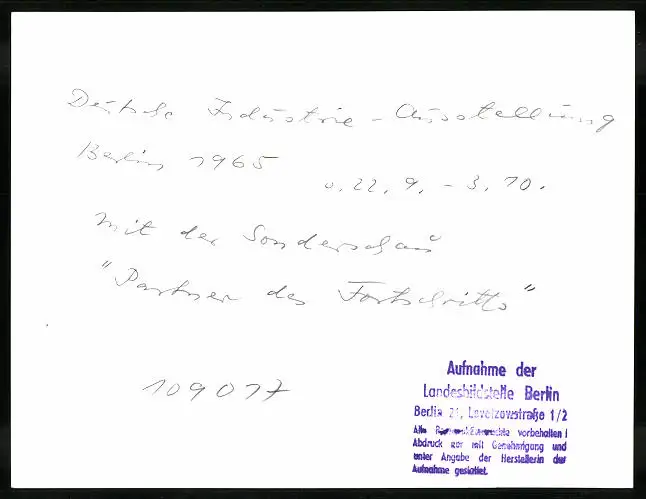 Deutsche Industrie-Ausstellung
Berlin 1965
v. 22. 9. - 3. 10.
mit der Sonderschau
"Partner des Fortschritts"
109077
Aufnahme der
Landesbildstelle Berlin
Berlin 21, Levetzowstraße 1/2
Alle vorbehalten!
Abdruck nur mit Genehmigung und
unter Angabe der Herstellerin der
Aufnahme gestattet.